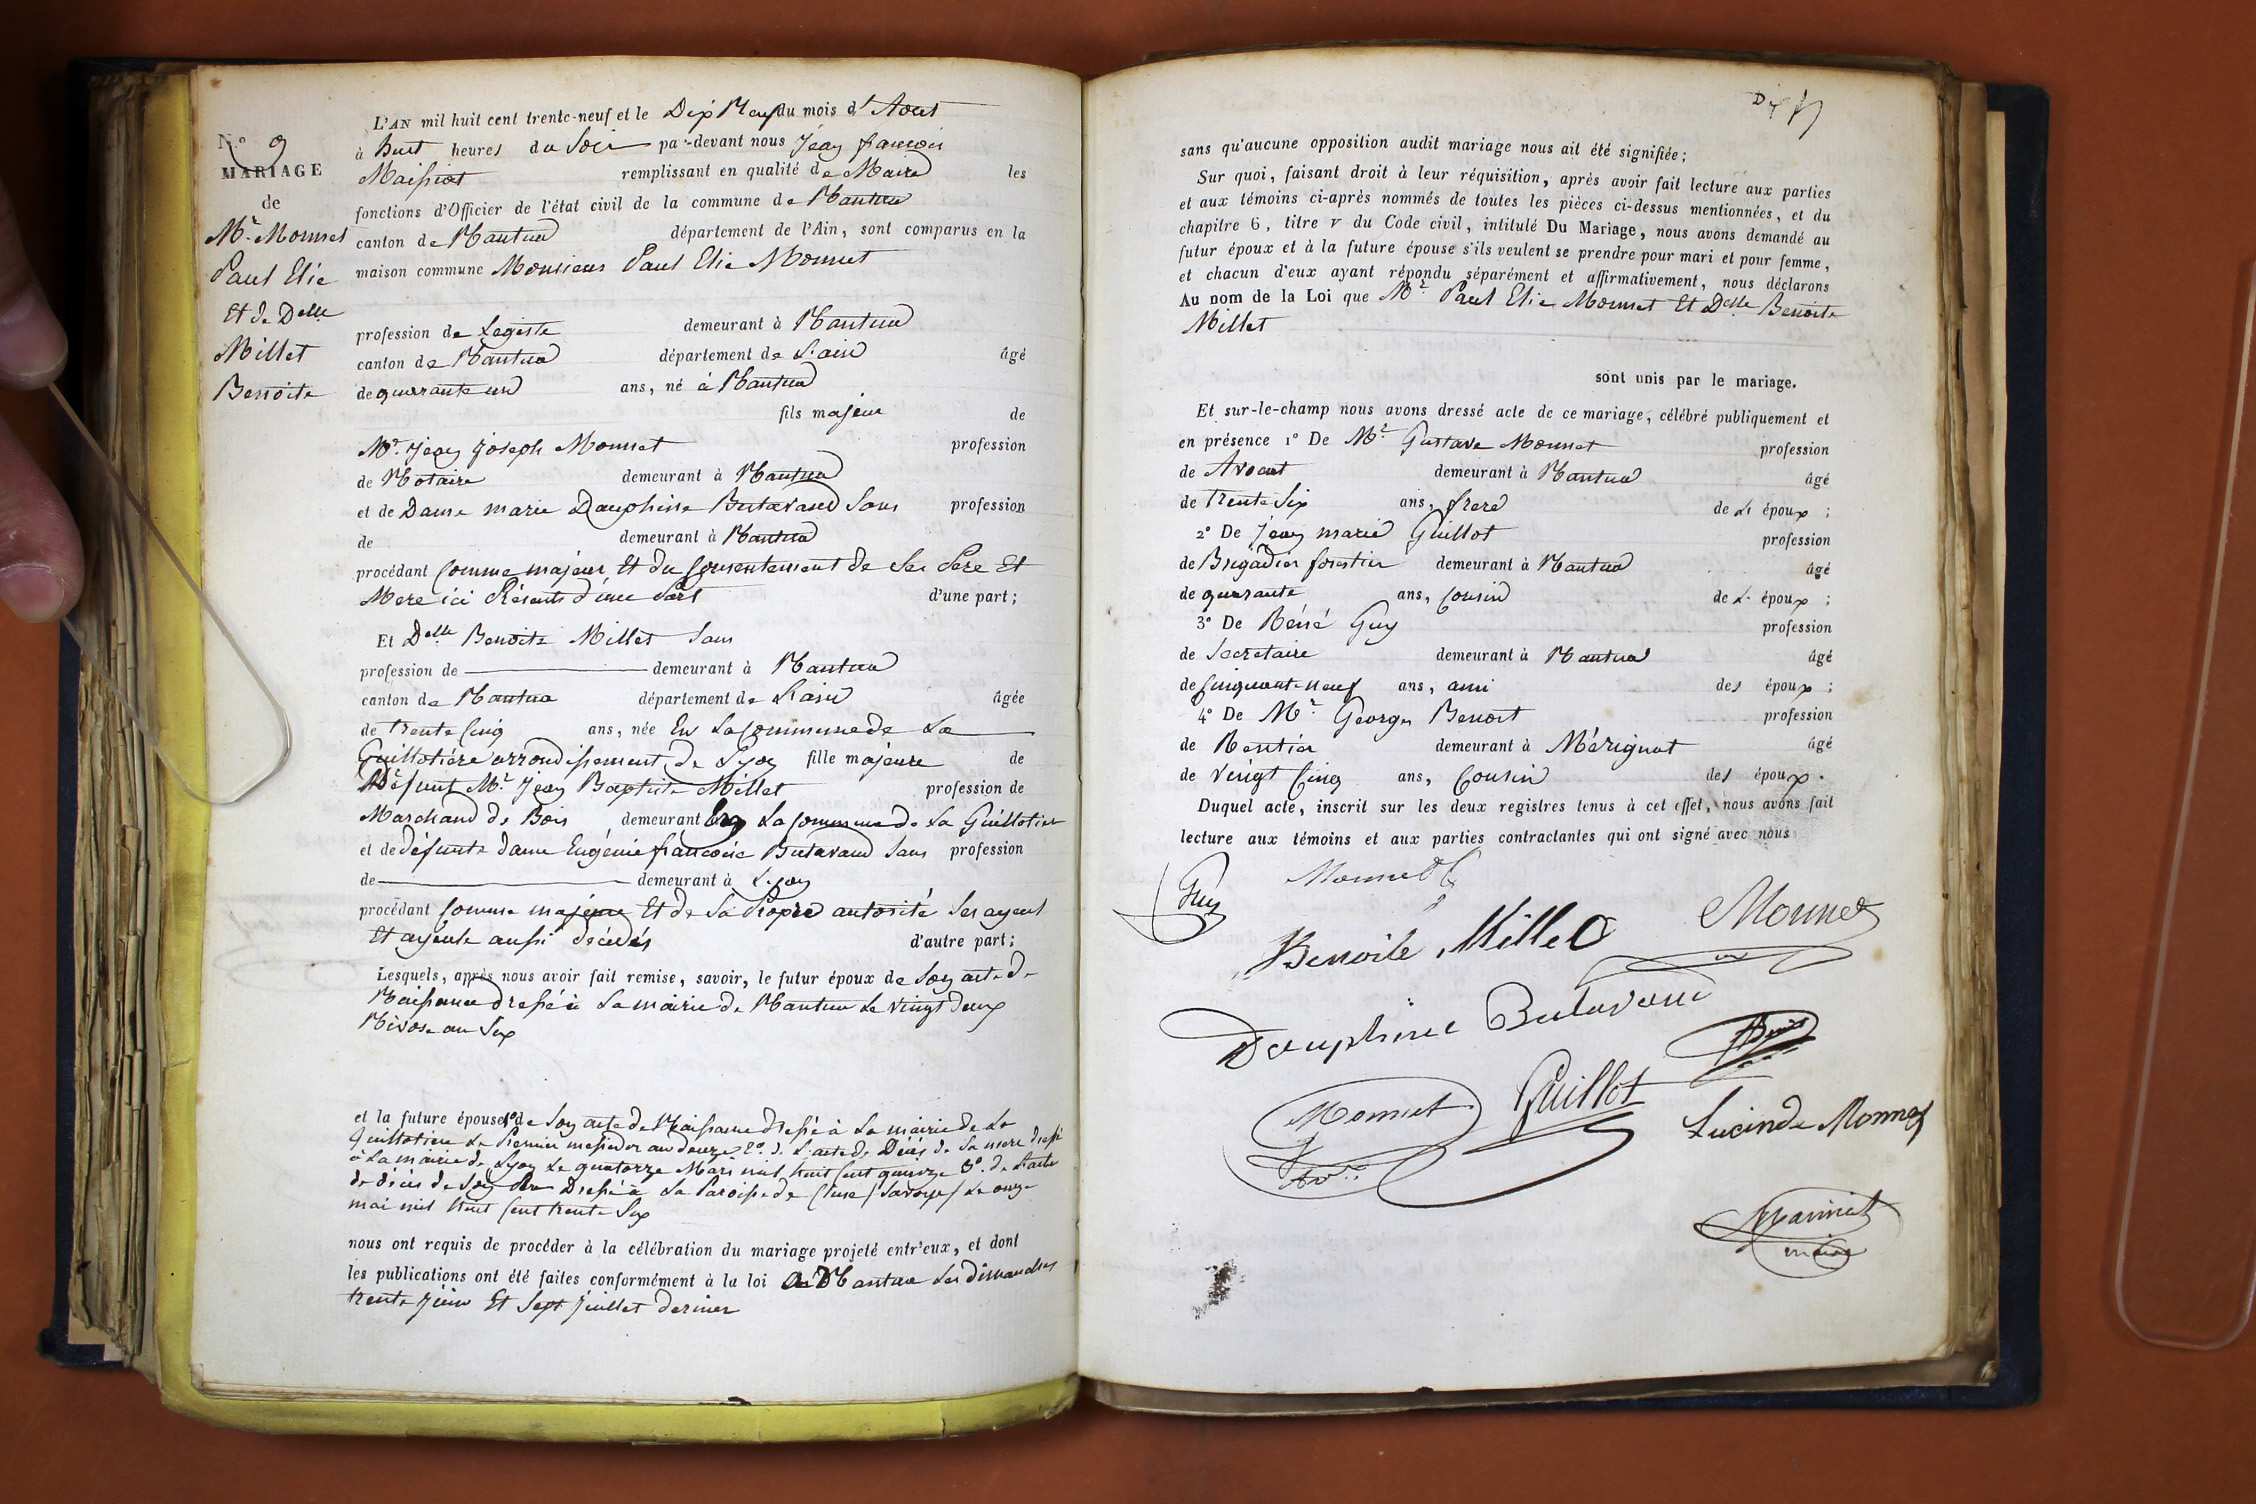 N.° 9
MARIAGE
de
Mr. Monnet
Paul Elie
Et de Delle
Millet
Benoite
L'AN mil huit cent trente-neuf et le Dix Neuf du mois d'Aout
à huit heures du Soir par-devant nous Jean françois
Maissiat remplissant en qualité de Maire les
fonctions d'Officier de l'état civil de la commune de Nantua
canton de Nantua département de l'Ain, sont comparus en la
maison commune Monsieur Paul Elie Monnet
profession de Legiste demeurant à Nantua
canton de Nantua département de L'ain âgé
de quarante un ans, né à Nantua
fils majeur de
Mr. Jean Joseph Monnet profession
de Notaire demeurant à Nantua
et de Dame marie Dauphine Butavand Sans profession
de demeurant à Nantua
procédant Comme majeur Et du Consentement de Ses Pere Et
Mere ici Présents d'une Part d'une part;
Et Delle Benoite Millet Sans
profession de demeurant à Nantua
canton de Nantua département de L'ain âgée
de trente Cinq ans, née En La Commune de La
Guillotière arrondissement de Lyon fille majeure de
Défunt Mr. Jean Baptiste Millet profession de
Marchand de Bois demeurant En La Commune de La Guillotiere
et de défunte dame Eugénie françoise Butavand Sans profession
de demeurant à Lyon
procédant Comme majeure Et de Sa Propre autorité Ses ayeul
Et ayeule aussi décédés d'autre part;
Lesquels, après nous avoir fait remise, savoir, le futur époux de Son acte de
Naissance dressé à La mairie de Nantua Le vingt deux
Nivose an Six
et la future épouse 1° de Son acte de Naissance dressé à La mairie de La
Guillotiere Le Premier messidor an douze 2°. de L'acte de Décès de Sa mere dressé
à La mairie de Lyon Le quatorze Mars mil huit Cent quinze 3°. de L'acte
de décès de Son Pere Dressé à La Paroisse de Cluse / Savoye / Le onze
mai mil huit Cent trente Six
nous ont requis de procéder à la célébration du mariage projeté entr'eux, et dont
les publications ont été faites conformément à la loi à Nantua Les dimanches
trente Juin Et Sept Juillet dernier
sans qu'aucune opposition audit mariage nous ait été signifiée;
Sur quoi, faisant droit à leur réquisition, après avoir fait lecture aux parties
et aux témoins ci-après nommés de toutes les pièces ci-dessus mentionnées, et du
chapitre 6, titre v du Code civil, intitulé Du Mariage, nous avons demandé au
futur époux et à la future épouse s'ils veulent se prendre pour mari et pour femme,
et chacun d'eux ayant répondu séparément et affirmativement, nous déclarons
Au nom de la Loi que Mr. Paul Elie Monnet Et Delle Benoite
Millet
sont unis par le mariage.
Et sur-le-champ nous avons dressé acte de ce mariage, célébré publiquement et
en présence 1° De Mr. Gustave Monnet profession
de Avocat demeurant à Nantua âgé
de trente Six ans, frere de L' époux;
2° De Jean marie Guillot profession
de Brigadier forestier demeurant à Nantua âgé
de quarante ans, Cousin de L' époux;
3° De Réné Guy profession
de Secretaire demeurant à Nantua âgé
de Cinquante neuf ans, ami des époux;
4° De Mr. Georges Benoit profession
de Rentier demeurant à Mérignat âgé
de Vingt Cinq ans, Cousin des époux.
Duquel acte, inscrit sur les deux registres tenus à cet effet, nous avons fait
lecture aux témoins et aux parties contractantes qui ont signé avec nous
Guy Monnet
Benoite Millet Monnet
Dauphine Butavand
Monnet Guillot
Lucinde Monnet
Maissiat
maire